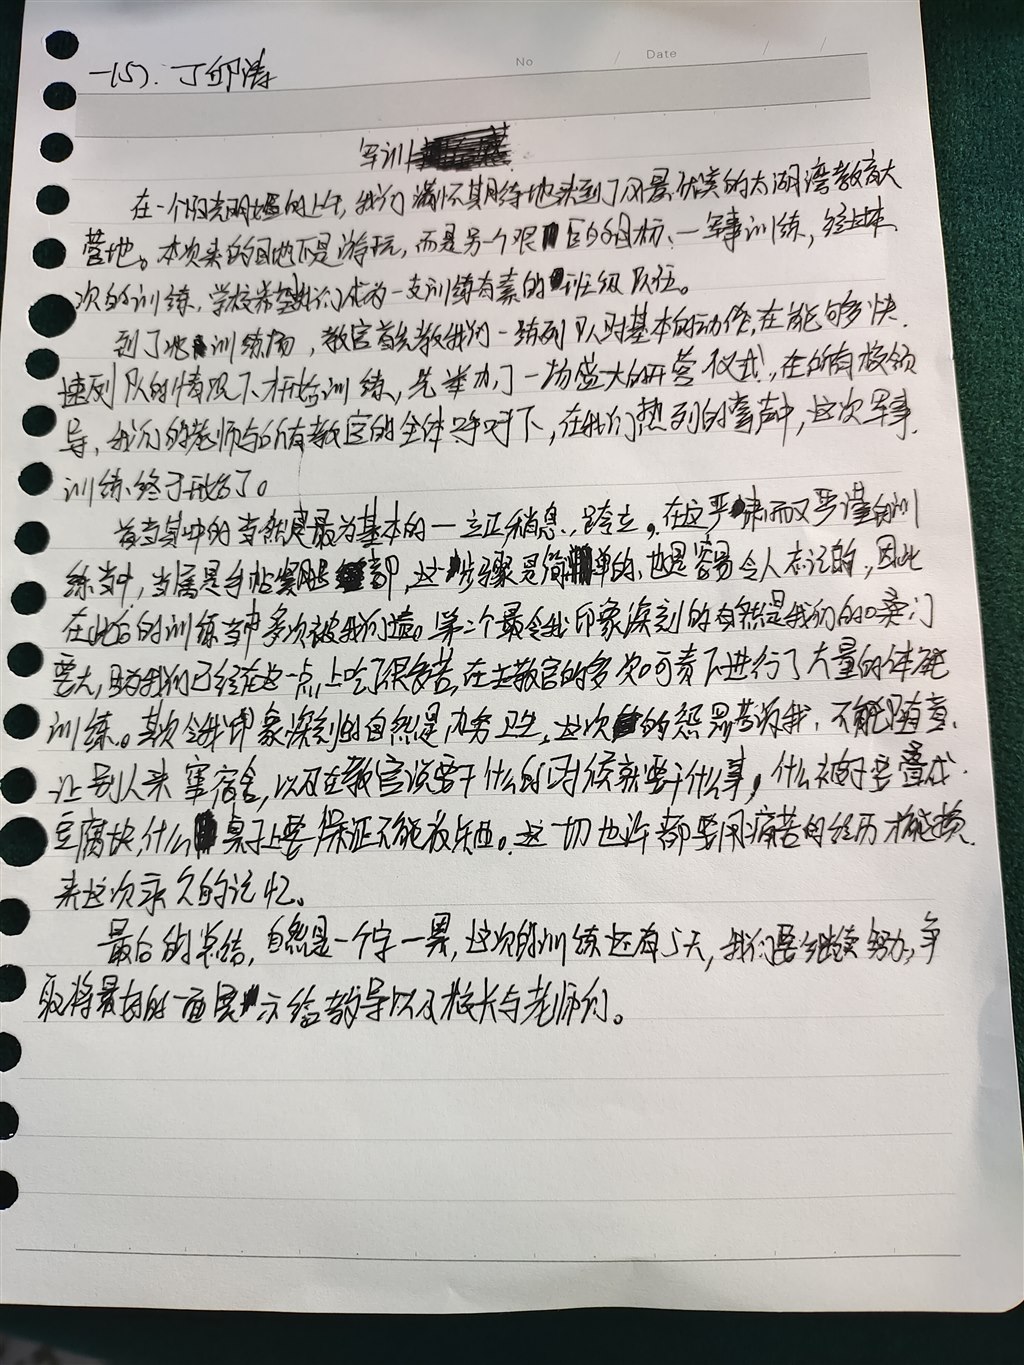 No / Date / /
一(5). 丁邱涛
军训
在一个阳光明媚的上午,我们满怀期待地来到了风景优美的太湖湾教育大
营地。本次来的目地不是游玩,而是另一个艰巨的目标、一军事训练,经过本
次的训练,学校希望我们成为一支训练有素的班级队伍。
到了训练场,教官首先教我们一些列队时基本的动作,在能够多快
速列队的情况下才开始训练,先举办了一场盛大的开营仪式,在所有校领
导、我们的老师与所有教官的全体呼吁下,在我们热列的掌声中,这次军事
训练终于开始了。
首当其中的当然是最为基本的一立正稍息、跨立。在这严肃而又严谨的训
练当中,当属是手帖裤,这步骤是简单的,也是容易令人忘记的,因此
在此后的训练当中多次被我们遗。第二个最令我印象深刻的自然是我们的嗓门
要大,因为我们已经在这一点上吃了很多苦,在王教官的多次呵责下进行了大量的体能
训练。其次令我印象深刻的自然是内务卫生。这次的
让别人来宿舍,以及在教官说要干什么的时候就要干什么事,什么被子要叠成
豆腐块,什么桌子上要保证不能放东西。这一切也许都要用痛苦的经历才能换
来这次永久的记忆。
最后的总结,自然是一个字一累,这次的训练还有5天,我们要继续努力,争
取将最好的一面展示给教导以及校长与老师们。